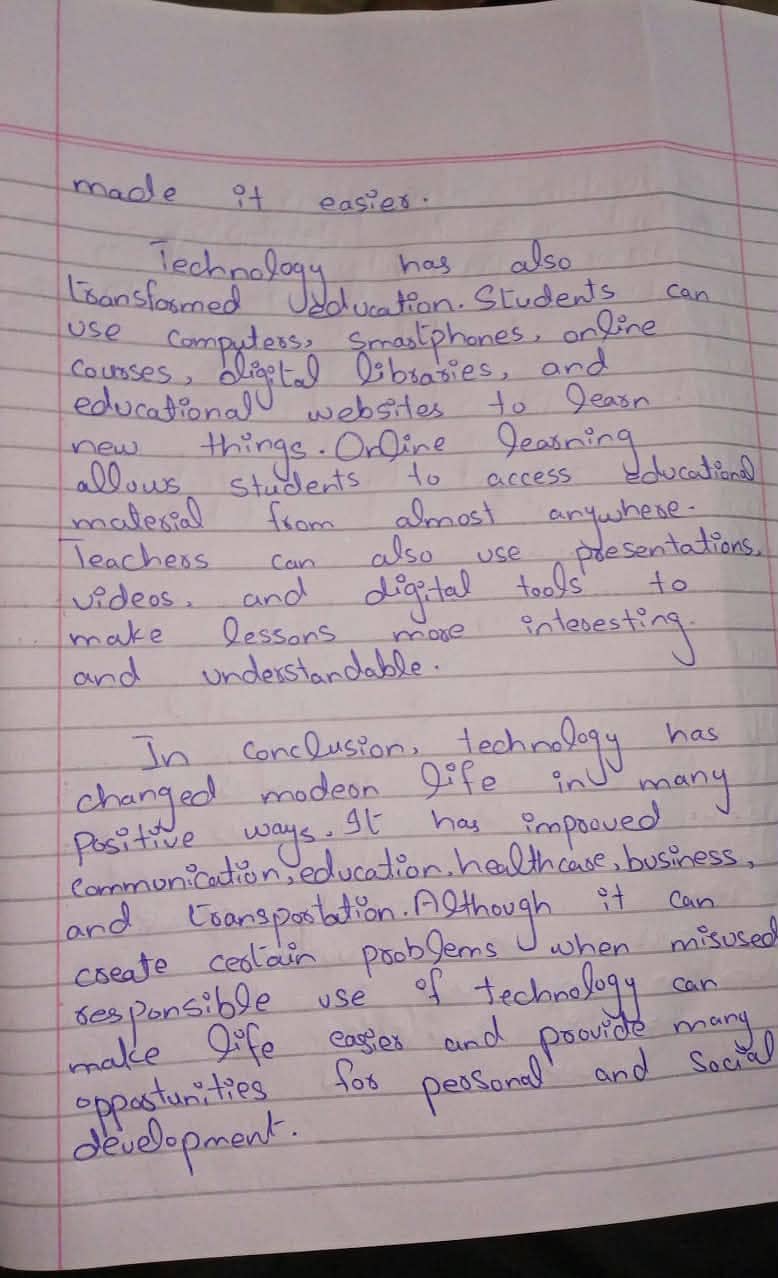 made it easier.
Technology has also
transformed education. Students can
use computers, smartphones, online
courses, digital libraries, and
educational websites to learn
new things. Online learning
allows students to access educational
material from almost anywhere.
Teachers can also use presentations,
videos, and digital tools to
make lessons more interesting
and understandable.
In conclusion, technology has
changed modern life in many
positive ways. It has improved
communication, education, healthcare, business,
and transportation. Although it can
create certain problems when misused
responsible use of technology can
make life easier and provide many
opportunities for personal and social
development.